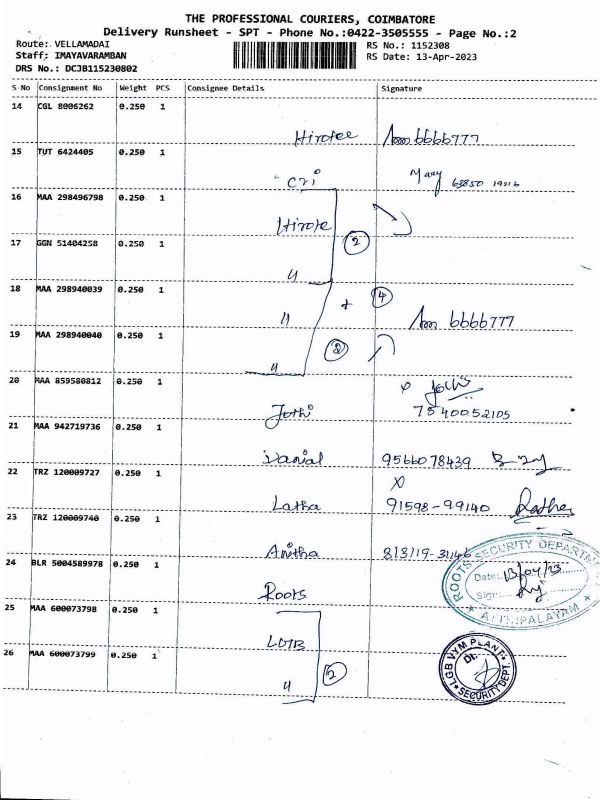 THE PROFESSIONAL COURIERS, COIMBATORE
Delivery Runsheet - SPT - Phone No.:0422-3505555 - Page No.:2
Route: VELLAMADAI RS No.: 1152308
Staff: IMAYAVARAMBAN RS Date: 13-Apr-2023
DRS No.: DCJB115230802
S No Consignment No Weight PCS Consignee Details Signature
14 CGL 8006262 0.250 1
Hirotec 6666777
15 TUT 6424405 0.250 1
Cri Mary 63850
16 MAA 298496798 0.250 1
Hirote
17 GGN 51404258 0.250 1
2
"
18 MAA 298940039 0.250 1
+ 4
" 6666777
19 MAA 298940040 0.250 1
2
"
20 MAA 859580812 0.250 1
x Jothi
Jothi 7540052105
21 MAA 942719736 0.250 1
Danial 9566078439
22 TRZ 120009727 0.250 1
x
Latha 91598-99140
23 TRZ 120009740 0.250 1
Anitha
24 BLR 5004589978 0.250 1
Roots
ROOTS SECURITY DEPARTMENT
Date: 13/04/23
Sign:
ATHIPALAYAM
25 MAA 600073798 0.250 1
LGB
26 MAA 600073799 0.250 1
" 2
LGB VYM PLANT
Dt:
SECURITY DEPT.